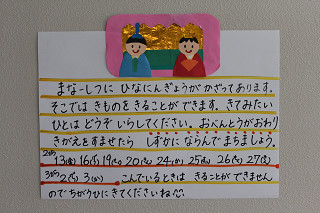 まなーしつに ひなにんぎょうが かざってあります。
そこでは きものを きることが できます。きてみたい
ひとは どうぞ いらしてください。おべんとうが おわり
きがえをすませたら しずかに ならんで まちましょう。
2がつ 13(金) 16(月) 19(木) 20(金) 24(火) 25(水) 26(木) 27(金)
3がつ 2(月) 3(火) こんでいるときは きることが できません
ので ちがうひに きてくださいね